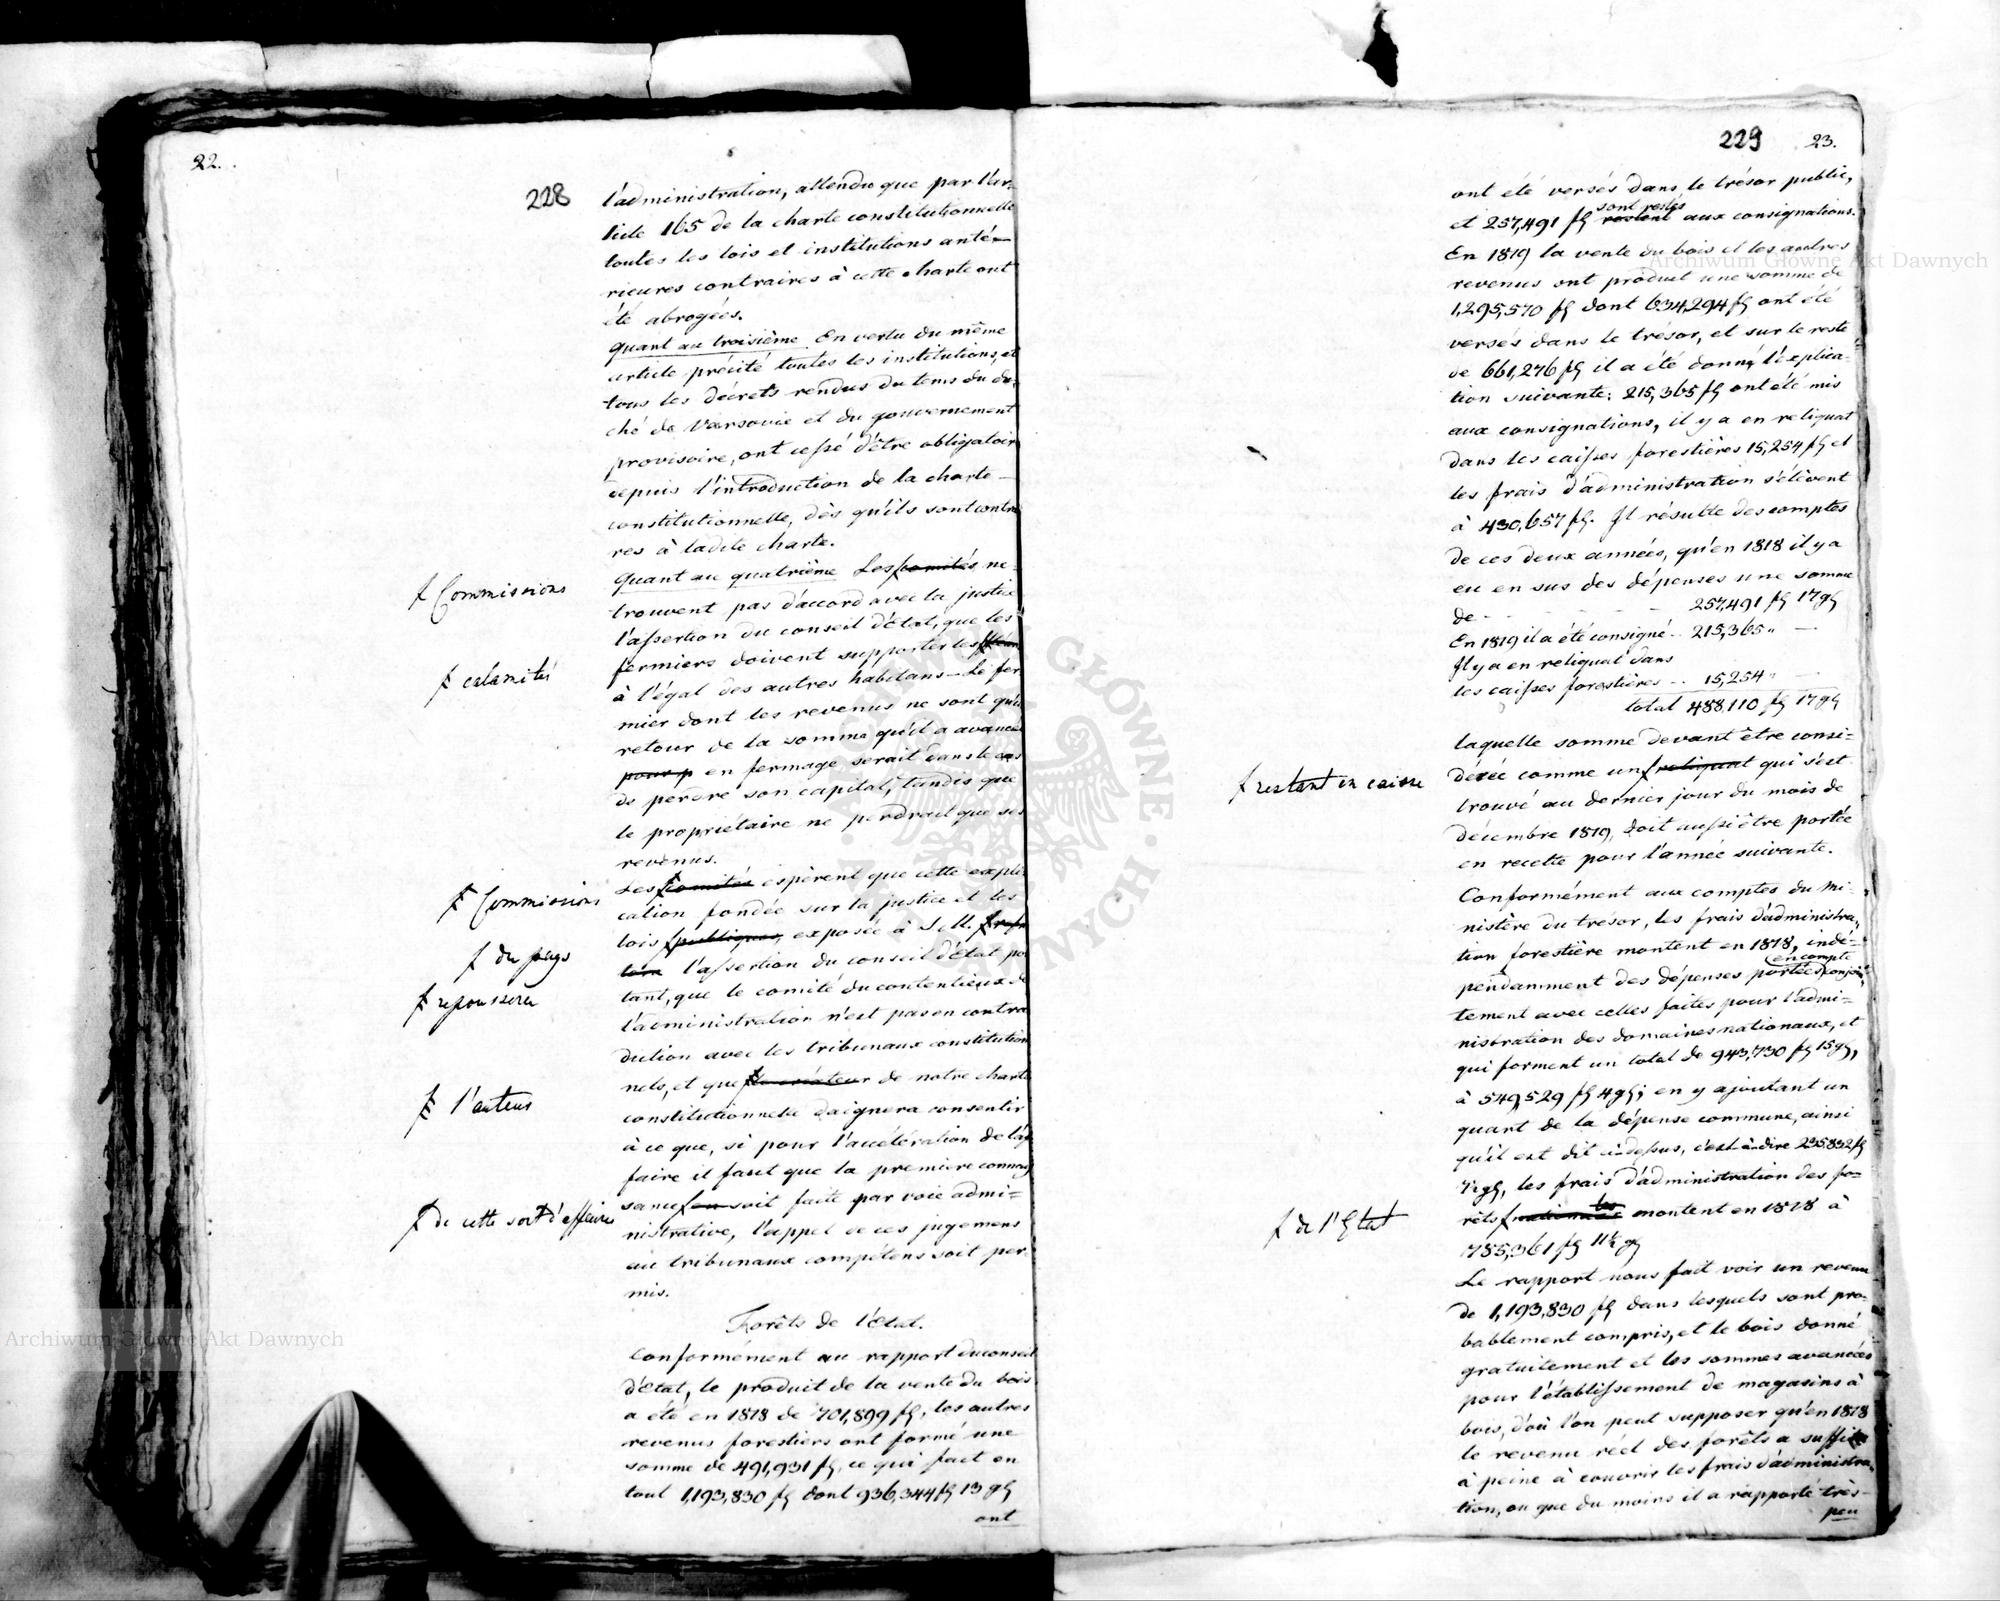 22.
228
l'administration, attendu que par l'ar-
ticle 165 de la charte constitutionnelle
toutes les lois et institutions anté-
rieures contraires à cette charte ont
été abrogées.
Quant au troisième. En vertu du même
article précité toutes les institutions, et
tous les décrets rendus du tems du du-
ché de Varsovie et du gouvernement
provisoire, ont cessé d'être obligatoir
depuis l'introduction de la charte
constitutionnelle, dès qu'ils sont contra
res à ladite charte.
Quant au quatrième Les comités ne
Commissions
trouvent pas d'accord avec la justice
l'assertion du conseil d'état, que les
fermiers doivent supporter les
calamités
à l'égal des autres habitans — Le fer
mier dont les revenus ne sont qu'un
retour de la somme qu'il a avancée
pour p en fermage serait dans le cas
de perdre son capital, tandis que
le propriétaire ne perdrait que ses
revenus.
Les comités espèrent que cette expli
Commissions
cation fondée sur la justice et les
lois publiques, exposée à S. M.
du pays
l'assertion du conseil d'état por
repoussera
tant, que le comité du contentieux de
l'administration n'est pas en contra
diction avec les tribunaux constitution
nels, et que le créateur de notre charte
l'auteur
constitutionnelle daignera consentir
à ce que, si pour l'accélération de l'af
faire il faut que la premiere connais
sance en soit faite par voie admi=
de cette sort d'affaires
nistrative, l'appel de ces jugemens
au tribunaux compétens soit per
mis.
Forêts de l'état.
Conformément au rapport du conseil
d'état, le produit de la vente du bois
a été en 1818 de 701,899 fl, les autres
revenus forestiers ont formé une
somme de 491,931 fl, ce qui fait en
tout 1,193,830 fl dont 936,344 fl 13 gl
ont
229
23.
ont été versés dans le trésor public,
sont restés
et 257,491 fl restent aux consignations.
En 1819 la vente du bois et les autres
revenus ont produit une somme de
1,295,570 fl dont 634,294 fl ont été
versés dans le trésor, et sur le reste
de 661,276 fl il a été donné l'explica-
tion suivante: 215,365 fl ont été mis
aux consignations, il y a en reliquat
dans les caisses forestières 15,254 fl et
les frais d'administration s'élèvent
à 430,657 fl. Il résulte des comptes
de ces deux années, qu'en 1818 il y a
eu en sus des dépenses une somme
de - - - - 257,491 fl 17 gl
En 1819 il a été consigné - 215,365 " —
Il y a en reliquat dans
les caisses forestières - 15,254 " —
total 488,110 fl 17 gl
laquelle somme devant être consi=
dérée comme un reliquat qui s'est
restant en caisse
trouvé au dernier jour du mois de
décembre 1819, doit aussi être portée
en recette pour l'année suivante.
Conformément aux comptes du mi-
nistère du tresor, les frais d'administra-
tion forestière montent en 1818, indé=
en compte
pendamment des dépenses portées conjoin-
tement avec celles faites pour l'admi=
nistration des domaines nationaux, et
qui forment un total de 943,730 fl 15 gl,
à 549,529 fl 4 gl; en y ajoutant un
quart de la dépense commune, ainsi
qu'il est dit cidessus, c'est-à-dire 235,832 fl
7½ gl, les frais d'administration des fo-
rêts nationales montent en 1818 à
de l'Etat
785,361 fl 11½ gl
Le rapport nous fait voir un revenu
de 1,193,830 fl dans lesquels sont pro-
bablement compris, et le bois donné
gratuitement et les sommes avancées
pour l'établissement de magasins à
bois, d'où l'on peut supposer qu'en 1818
le revenu réel des forêts a suffi
à peine à couvrir les frais d'administra-
tion, ou que du moins il a rapporté très-
peu
Archiwum Główne Akt Dawnych
Archiwum Główne Akt Dawnych
ARCHIWUM GŁÓWNE AKT DAWNYCH